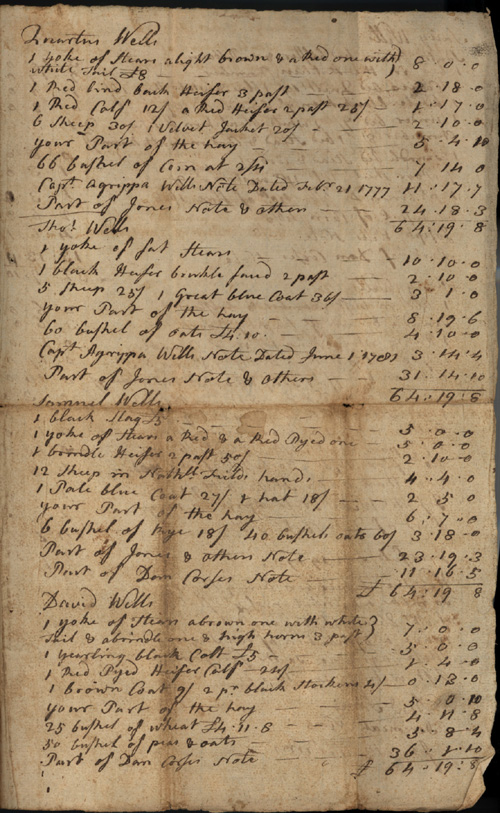 Quartus Wells
1 yoke of Stears a light brown & a Red one with)
white tail £8 — — — 8 . 0 . 0
1 Red lind back Heifer 3 past — 2 . 18 . 0
1 Red Calf 12/ a Red Heifer 2 past 25/ 1 . 17 . 0
6 Sheep 30/ 1 Velvet Jacket 20/ — 2 . 10 . 0
your Part of the hay — — 5 . 4 . 10
66 bushel of Corn at 2/4 7 14 0
Capt. Agrippa Wells Note Dated Febr. 21 1777 11 . 17 . 7
Part of Jones Note & others — 24 . 18 . 3
Thos. Wells 64 . 19 . 8
1 yoke of fat Stears — — 10 . 10 . 0
1 black Heifer brinkle faced 2 past 2 . 10 . 0
5 Sheep 25/ 1 Great blue Coat 36/ — 3 . 1 . 0
your Part of the hay — — 8 . 19 . 6
60 bushel of oats £4.10. — 4 . 10 . 0
Capt Agrippa Wells Note Dated June 1 3 . 14 . 4
Part of Jones Note & others — 31 . 14 . 10
64 . 19 . 8
Samuel Wells
1 black Stag £5 — — 5 . 0 . 0
1 yoke of Stears a Red & a Red Pyed one — 5 . 0 . 0
1 brindle Heifer 2 past 50/ 2 . 10 . 0
12 Sheep in Fields hands — 4 . 4 . 0
1 Pale blue Coat 27/ 1 hat 18/ — 2 5 0
your Part of the hay 6 . 7 . 0
6 bushel of Rye 18/ 40 bushels oats 60/ 3 . 18 . 0
Part of Jones & others Note — 23 . 19 . 3
Part of Dan Corses Note — 11 . 16 . 5
£ 64 . 19 8
David Wells
1 yoke of Stears a brown one with white)
tail & a brindle one & high horns 3 past) 7 . 0 . 0
1 yearling black Colt £5 — 5 . 0 . 0
1 Red Pyed Heifer Calf — 24/ 1 . 4 . 0
1 brown Coat 9/ 2 pr. black Stockens 4/ — 0 . 13 . 0
your Part of the hay 5 . 0 . 10
25 bushel of wheat £4.11.8 4 . 11 . 8
50 bushel of peas & oats — 5 . 8 . 4
Part of Dan Corses Note 36 . 1 . 10
£ 64 . 19 . 8